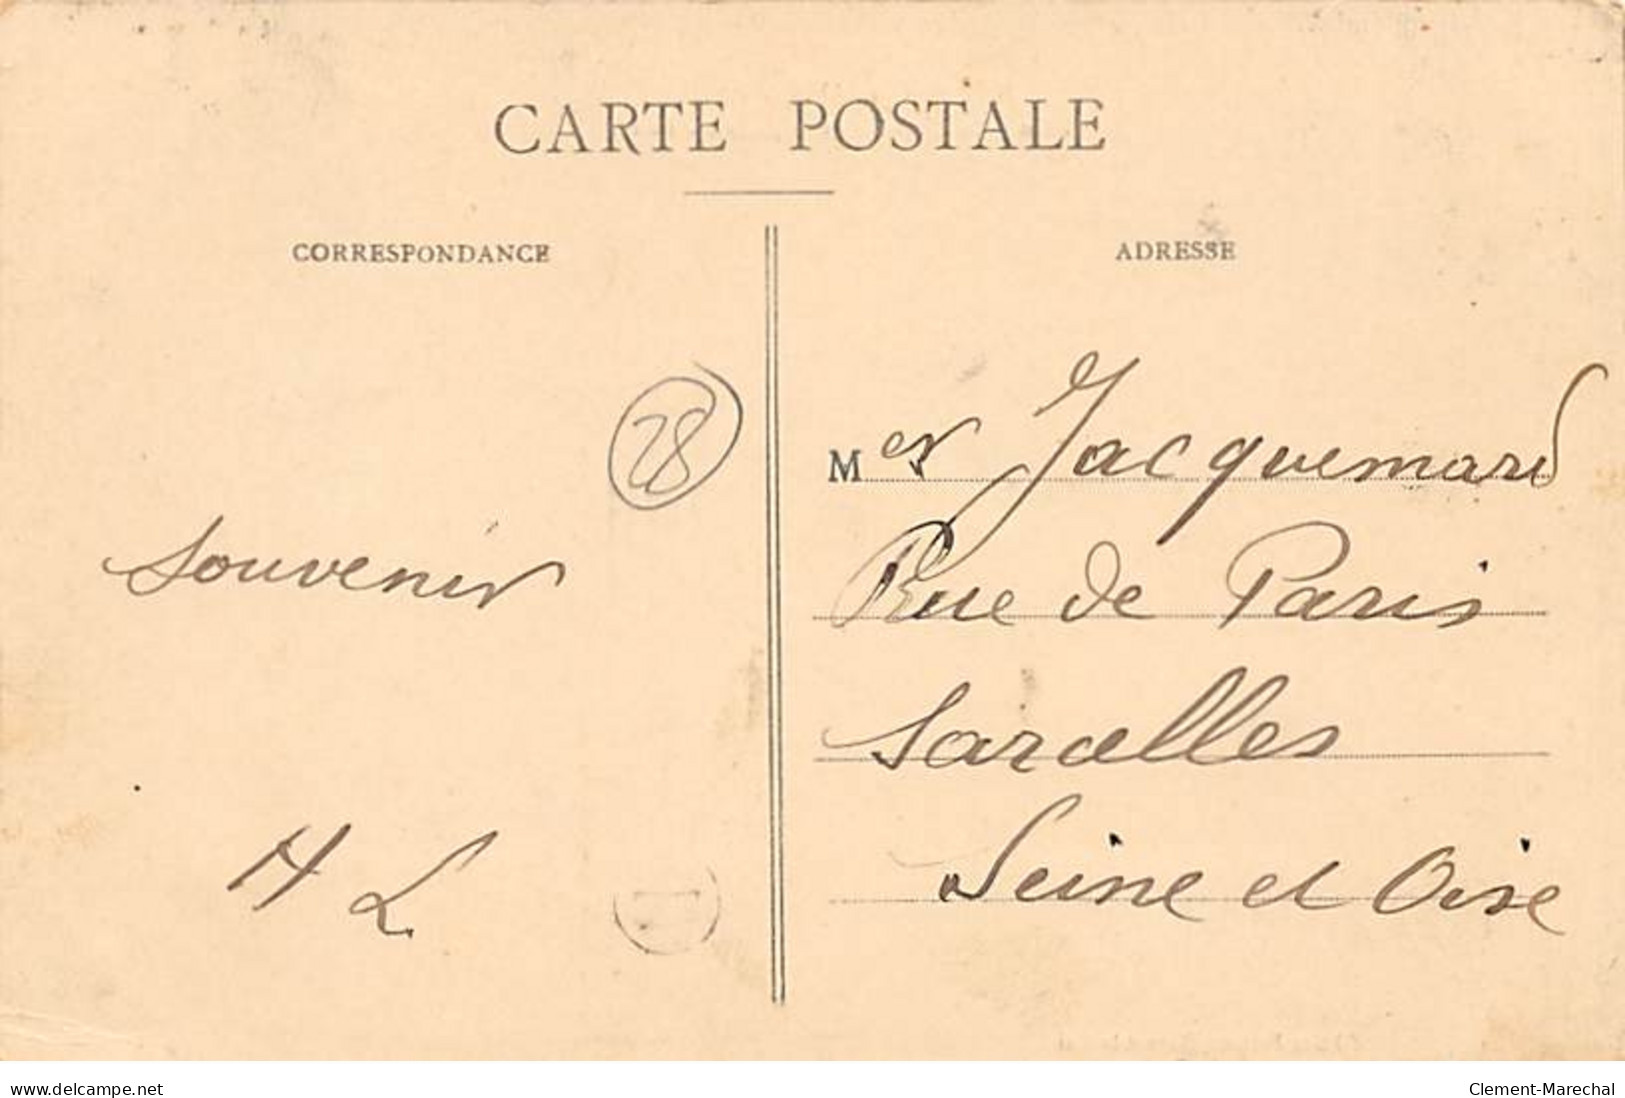 CARTE POSTALE
CORRESPONDANCE
ADRESSE
28
souvenir
H L
Mer Jacquemard
Rue de Paris
Sarcelles
Seine et Oise
www.delcampe.net
Clement-Marechal